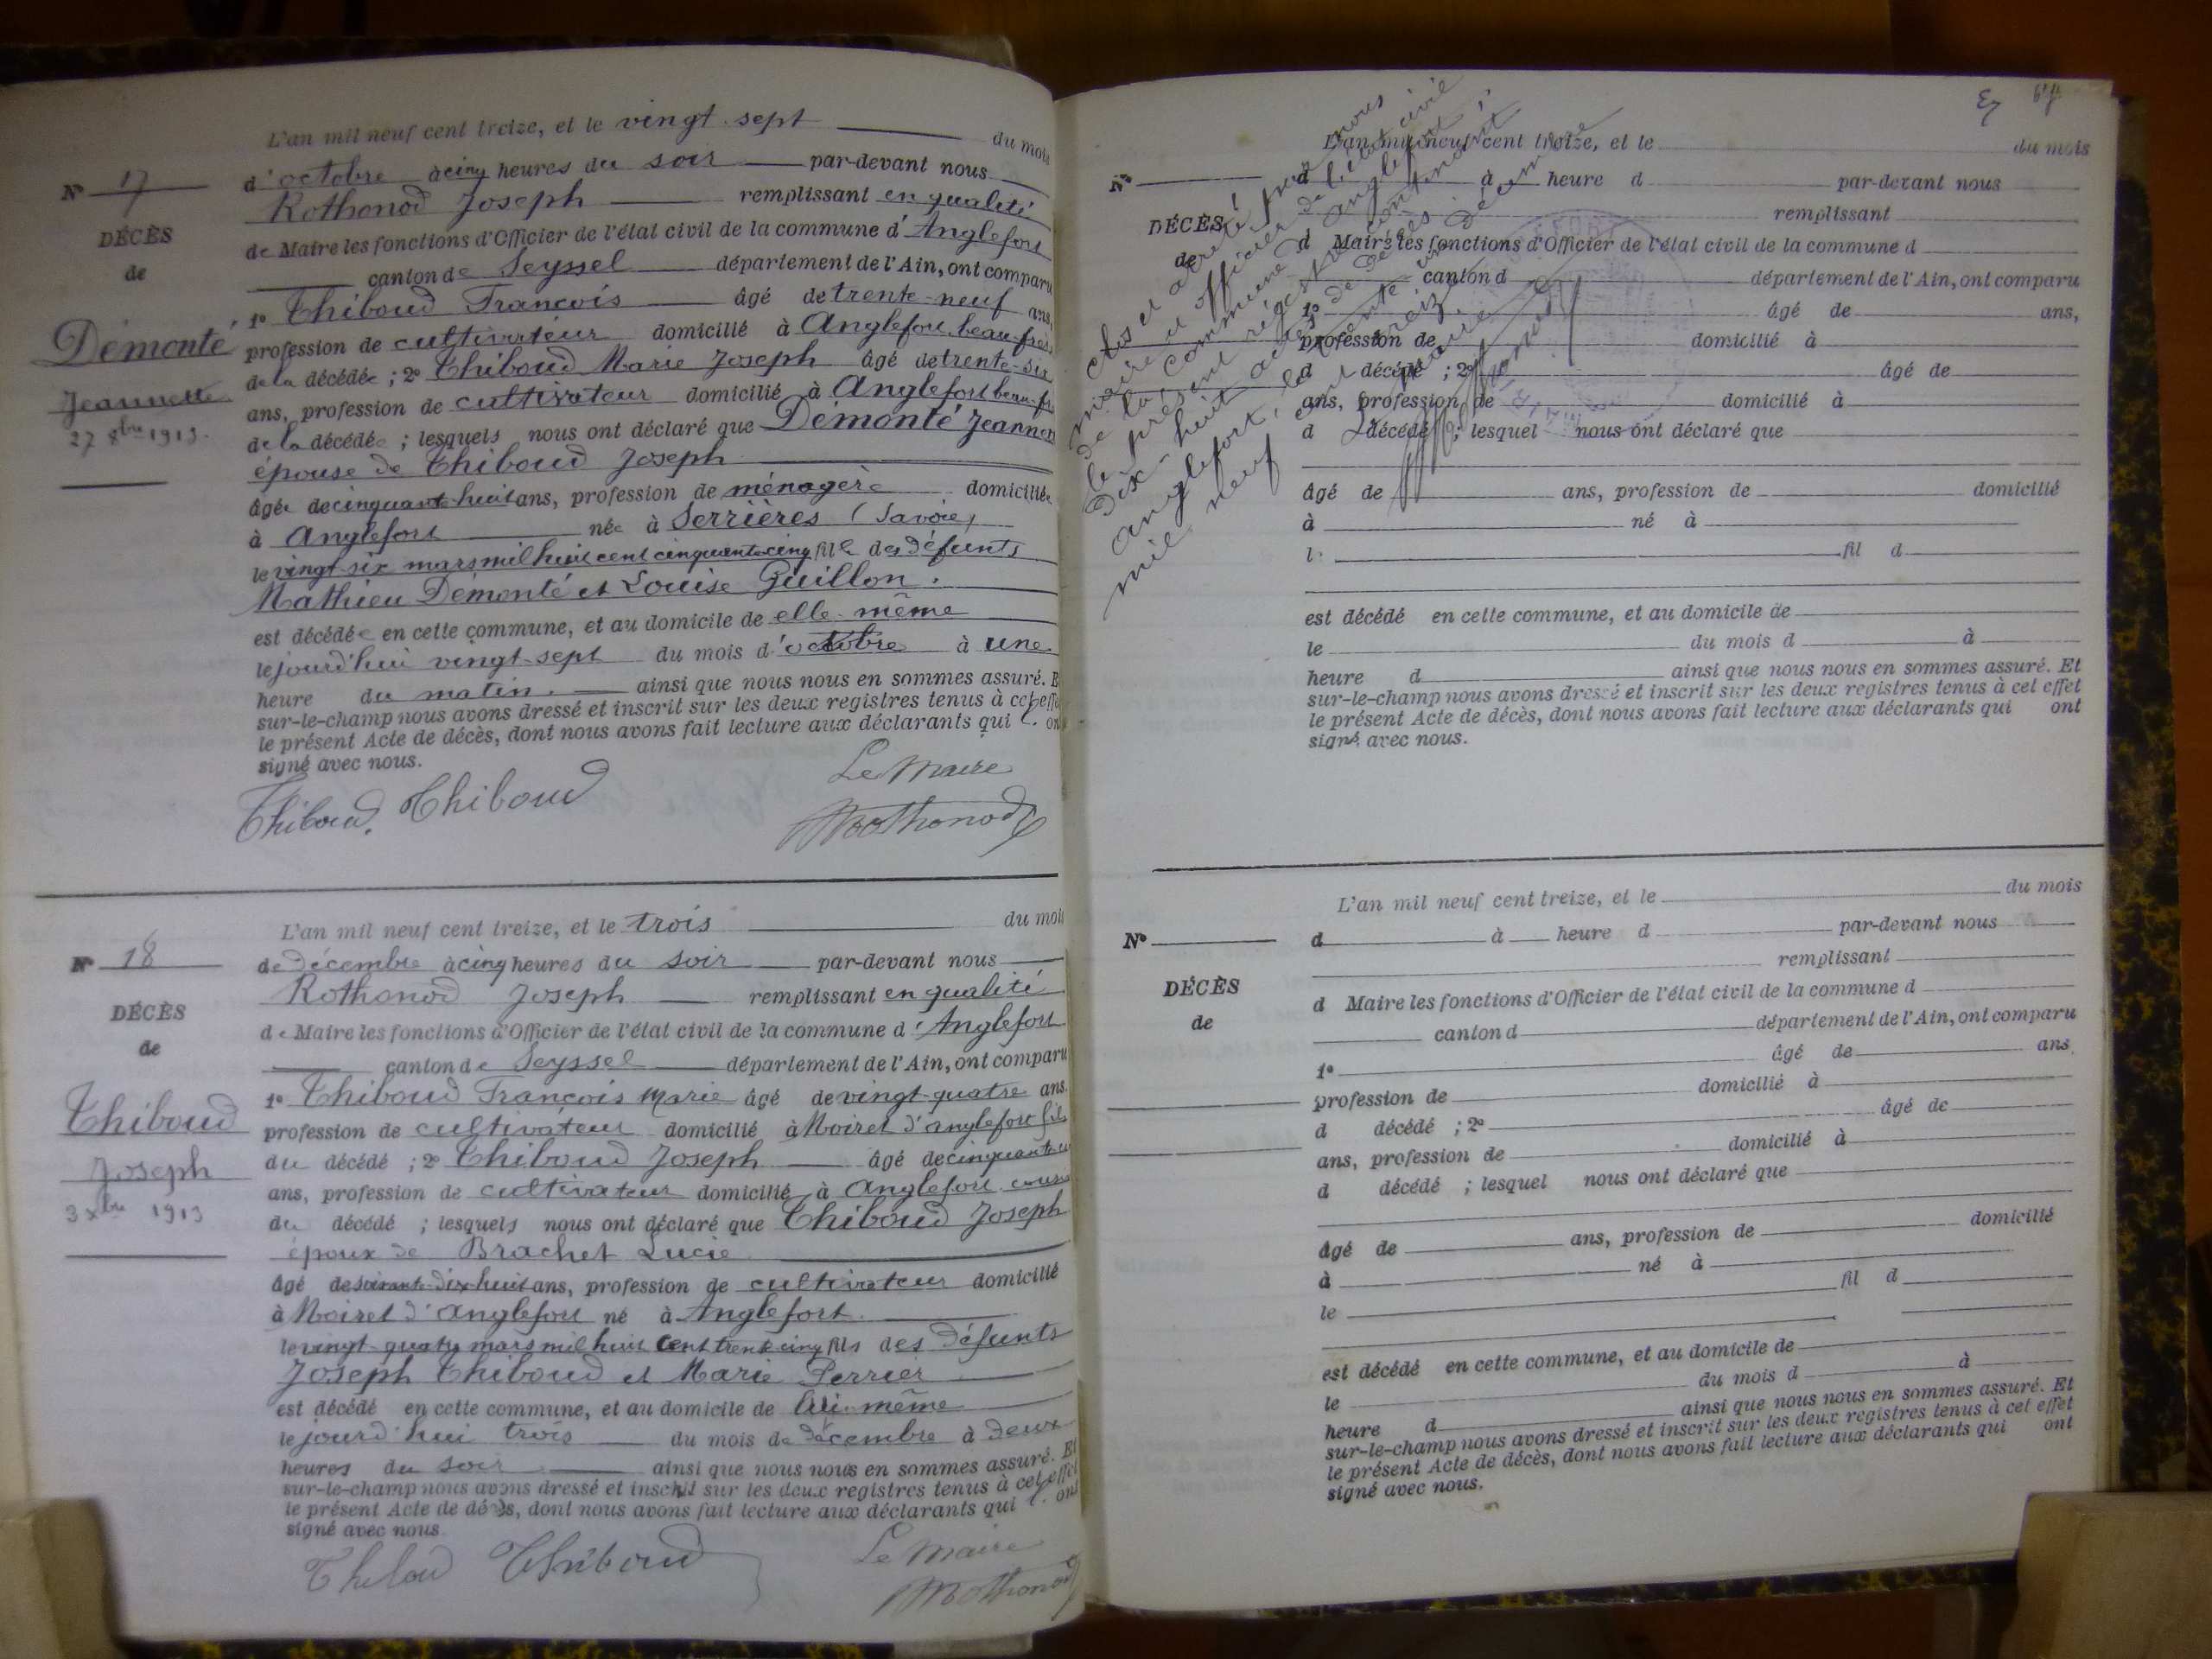 L'an mil neuf cent treize, et le vingt-sept du mois
d'octobre à cinq heures du soir par-devant nous
Rothonod Joseph remplissant en qualité
de Maire les fonctions d'Officier de l'état civil de la commune d'Anglefort
canton de Seyssel département de l'Ain, ont comparu
1º Thiboud François âgé de trente-neuf ans,
profession de cultivateur domicilié à Anglefort beau-frère
de la décédée ; 2º Thiboud Marie Joseph âgé de trente-six
ans, profession de cultivateur domicilié à Anglefort beau-fr
de la décédée ; lesquels nous ont déclaré que Démonté Jeannet
épouse de Thiboud Joseph
âgée de cinquante huit ans, profession de ménagère domiciliée
à Anglefort née à Serrières (Savoie)
le vingt-six mars mil huit cent cinquante cinq fille des défunts
Mathieu Démonté et Louise Guillon.
est décédée en cette commune, et au domicile de elle-même
le jourd'hui vingt-sept du mois d'octobre à une
heure du matin. ainsi que nous nous en sommes assuré. Et
sur-le-champ nous avons dressé et inscrit sur les deux registres tenus à cet effet
le présent Acte de décès, dont nous avons fait lecture aux déclarants qui l' ont
signé avec nous.
Thiboud. Thiboud
Le Maire
Rothonod
Nº 17
DÉCÈS
de
Démonté
Jeannette
27 8bre 1913.
L'an mil neuf cent treize, et le trois du mois
de décembre à cinq heures du soir par-devant nous
Rothonod Joseph remplissant en qualité
de Maire les fonctions d'Officier de l'état civil de la commune d'Anglefort
canton de Seyssel département de l'Ain, ont comparu
1º Thiboud François Marie âgé de vingt-quatre ans.
profession de cultivateur domicilié à Moiret d'anglefort fils
du décédé ; 2º Thiboud Joseph âgé de cinquante
ans, profession de cultivateur domicilié à Anglefort cousin
du décédé ; lesquels nous ont déclaré que Thiboud Joseph
époux de Brachet Lucie
âgé de soixante-dix-huit ans, profession de cultivateur domicilié
à Moiret d'anglefort né à Anglefort.
le vingt-quatre mars mil huit cent trente-cinq fils des défunts
Joseph Thiboud et Marie Perrier
est décédé en cette commune, et au domicile de lui-même
le jourd'hui trois du mois de décembre à deux
heures du soir ainsi que nous nous en sommes assuré. Et
sur-le-champ nous avons dressé et inscrit sur les deux registres tenus à cet effet
le présent Acte de décès, dont nous avons fait lecture aux déclarants qui l' ont
signé avec nous
Thiboud Thiboud
Le Maire
Rothonod
Nº 18
DÉCÈS
de
Thiboud
Joseph
3 Xbre 1913
Clos et arrêté par nous
maire et officier de l'état civil
de la commune d'Anglefort,
le présent registre contenant
dix-huit actes de décès
Anglefort, le trente un décembre
mil neuf cent treize
Le Maire
Rothonod
L'an mil neuf cent treize, et le du mois
Nº
d à heure d par-devant nous
remplissant
DÉCÈS
de
d Maire les fonctions d'Officier de l'état civil de la commune d
canton d département de l'Ain, ont comparu
1º âgé de ans,
profession de domicilié à
d décédé ; 2º âgé de
ans, profession de domicilié à
d décédé ; lesquel nous ont déclaré que
âgé de ans, profession de domicilié
à né à
l fil d
est décédé en cette commune, et au domicile de
le du mois d à
heure d ainsi que nous nous en sommes assuré. Et
sur-le-champ nous avons dressé et inscrit sur les deux registres tenus à cet effet
le présent Acte de décès, dont nous avons fait lecture aux déclarants qui ont
signé avec nous.
L'an mil neuf cent treize, et le du mois
Nº
d à heure d par-devant nous
remplissant
DÉCÈS
de
d Maire les fonctions d'Officier de l'état civil de la commune d
canton d département de l'Ain, ont comparu
1º âgé de ans
profession de domicilié à
d décédé ; 2º âgé de
ans, profession de domicilié à
d décédé ; lesquel nous ont déclaré que
âgé de ans, profession de domicilié
à né à
le fil d
est décédé en cette commune, et au domicile de
le du mois d à
heure d ainsi que nous nous en sommes assuré. Et
sur-le-champ nous avons dressé et inscrit sur les deux registres tenus à cet effet
le présent Acte de décès, dont nous avons fait lecture aux déclarants qui ont
signé avec nous.